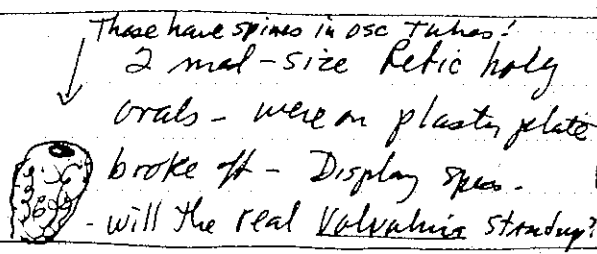 These have spines in osc tubes!
2 med-size Retic holy
ovals - were on plasty plate
broke off - Display spec.
- will the real Valvulina standup?